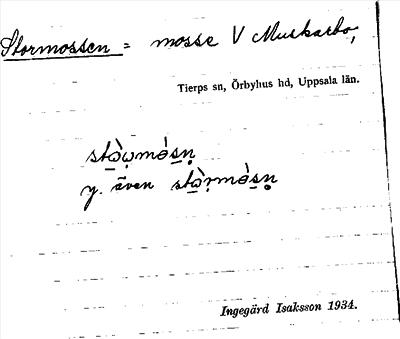 Stormossen = mosse V Murkarbo,
Tierps sn, Örbyhus hd, Uppsala län.
stὼ̱ω̣mòsn̥
y. även stὼ̱r̥mòsn̥
Ingegärd Isaksson 1934.